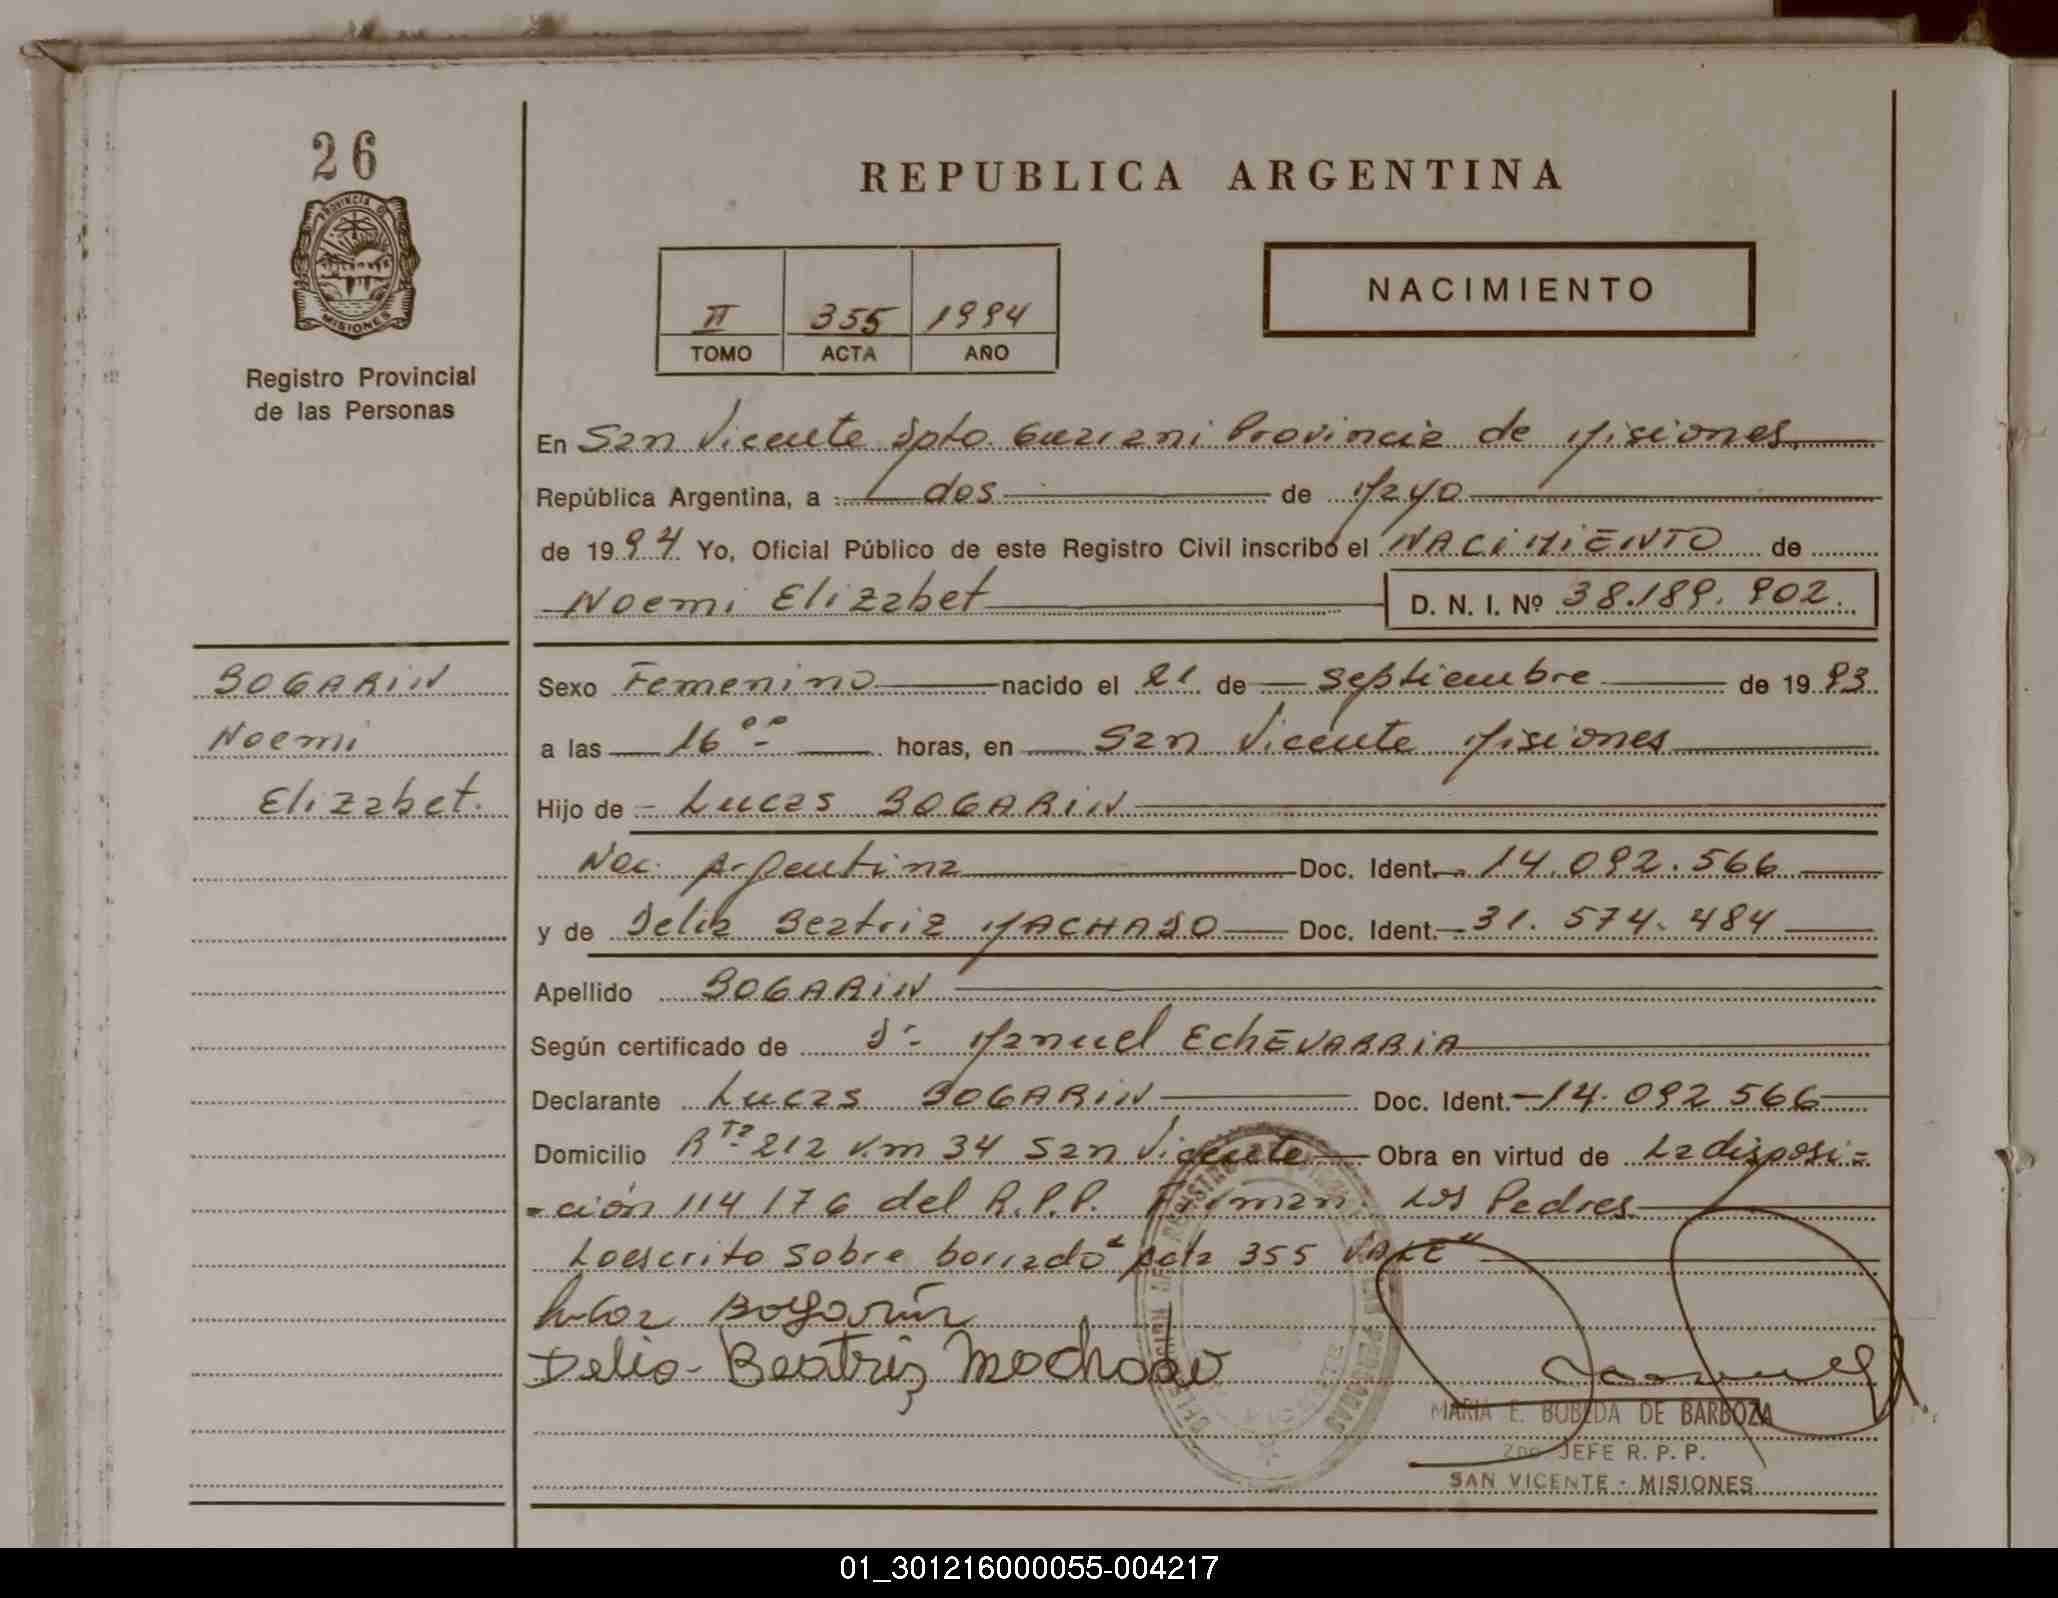 26
PROVINCIA DE
MISIONES
Registro Provincial
de las Personas
REPUBLICA ARGENTINA
II 355 1994
TOMO ACTA AÑO
NACIMIENTO
En San Vicente Dpto. Guarani Provincia de Misiones,
República Argentina, a dos de Mayo
de 1994 Yo, Oficial Público de este Registro Civil inscribo el NACIMIENTO de
Noemi Elizabet D. N. I. Nº 38.189.902.
BOGARIN
Noemi
Elizabet.
Sexo Femenino nacido el 21 de septiembre de 1993
a las 16 ºº horas, en San Vicente Misiones
Hijo de Lucas BOGARIN
Nac. Argentina Doc. Ident. 14.092.566
y de Delia Beatriz MACHADO Doc. Ident. 31.574.484
Apellido BOGARIN
Según certificado de Dr. Manuel EchEVARRIA
Declarante Lucas BOGARIN Doc. Ident. 14.092.566
Domicilio Rta 212 Km 34 San Vicente Obra en virtud de La disposi=
=ción 114/76 del R.P.P. Firman. Los Padres
Lo escrito sobre borrado "acta 355 VALE"
Lucas Bogarín
Delia Beatriz Machado
MARIA E. BOBEDA DE BARBOZA
2do JEFE R. P. P.
SAN VICENTE - MISIONES
01_301216000055-004217